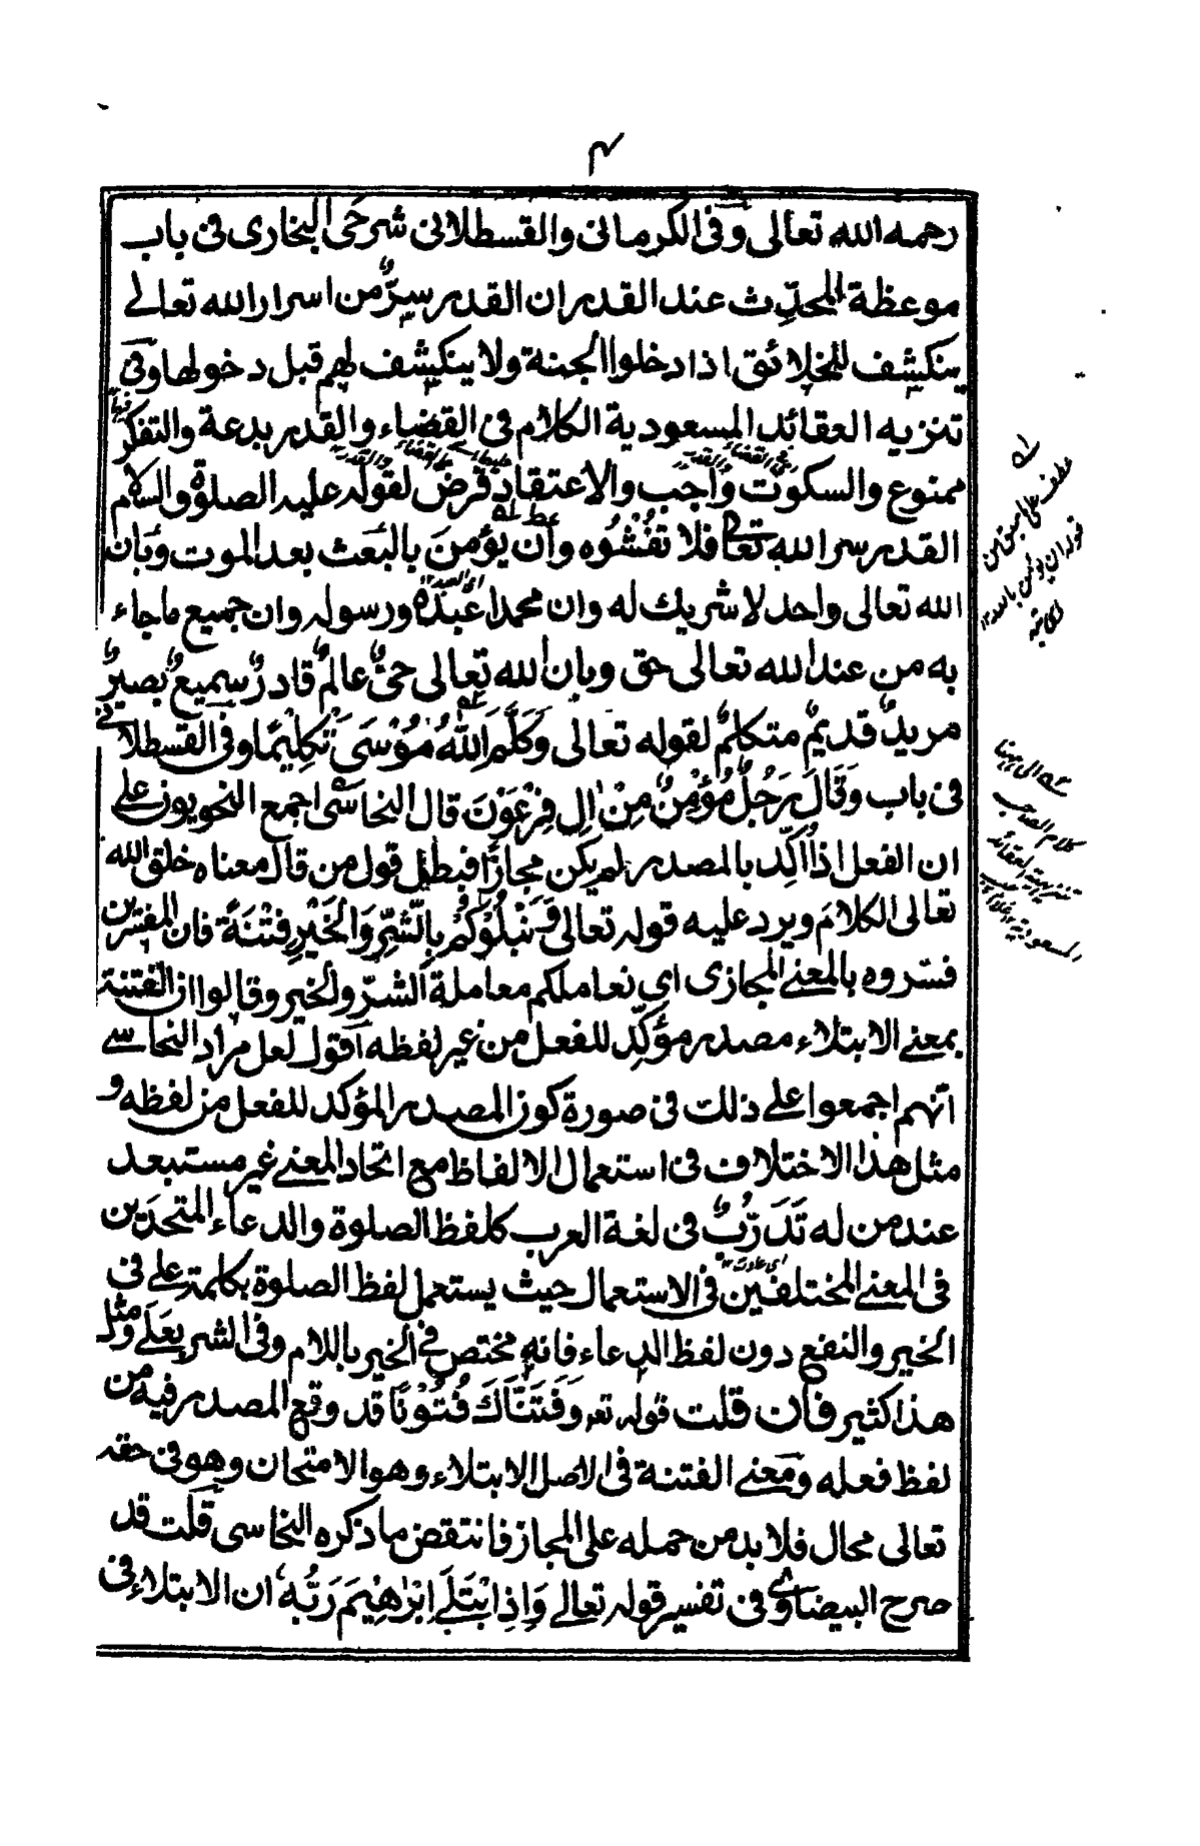 ۴
رحمه الله تعالى وفى الكرمانى والقسطلانى شرحَى البخارى فى باب
موعظة المحدِّث عند القدر ان القدر سِرٌّ من اسرار الله تعالے
ينكشف للخلائق اذا دخلوا الجنة ولا ينكشف لهم قبل دخولها وفى
تنزيه العقائد المسعودية الكلام فى القضاء والقدر بدعة والتفكر فيها
ممنوع والسكوت واجب والاعتقاد فرض لقوله عليه الصلوة والسلام
القدر سر الله تعا فلا تفشُوه وان يؤمنَ بالبَعث بعد الموت وبان
الله تعالى واحد لا شريك له وان محمدا عبدُه ورسوله وان جميع ما جاء
به من عند الله تعالى حق وبان الله تعالى حىٌّ عالمٌ قادرٌ سميعٌ بصيرٌ
مريدٌ قديمٌ متكلمٌ لقوله تعالى وَكَلَّمَ اللهُ مُوْسَى تَكْلِيْمًا وفى القسطلانے
فى باب وَقَالَ رَجُلٌ مُؤْمِنٌ مِنْ اٰلِ فِرْعَوْنَ قال النحاسى اجمع النحويون على
ان الفعل اذا اُكِّد بالمصدر لم يكن مجازًا فبطل قول من قال معناه خلق الله
تعالى الكلامَ ويرد عليه قوله تعالى وَنَبْلُوْكُمْ بِالشَّرِّ وَالْخَيْرِ فِتْنَةً فان المفسرين
فسّروه بالمعنى المجازى اى نعاملكم معاملة الشرّ والخير وقالوا ان الفتنة
بمعنے الابتلاء مصدر مؤكِّد للفعل من غير لفظه اقول لعل مراد النحاسے
انهم اجمعوا على ذلك فى صورة كون المصدر المؤكد للفعل من لفظه و
مثل هذا الاختلاف فى استعمال الالفاظ مع اتحاد المعنے غير مستبعد
عند من له تَدَرُّبٌ فى لغة العرب كلفظ الصلوة والدعاء المتحدّين
فى المعنے المختلفين فى الاستعمال حيث يستعمل لفظ الصلوة بكلمة على فى
الخير والنفع دون لفظ الدعاء فانه مختص فى الخير باللام وفى الشر بعلے ومثل
هذا كثير فان قلت قوله تعہ وَفَتَنَّاكَ فُتُوْنًا قد وقع المصدر فيه من
لفظ فعله ومعنى الفتنة فى الاصل الابتلاء وهو الامتحان وهو فى حقه
تعالى محال فلا بد من حمله على المجاز فانتقض ما ذكره النحاسى قلت قد
صرح البيضاوى فى تفسير قوله تعالے وَاِذِ ابْتَلٰى اِبْرٰهِيْمَ رَبُّهٗ ان الابتلاء فى
عطف على ما سبق من
قوله ان يؤمن بالله ١٢
الى ههنا
كلام الصاحب
تنزيهة العقائد
المسعودية